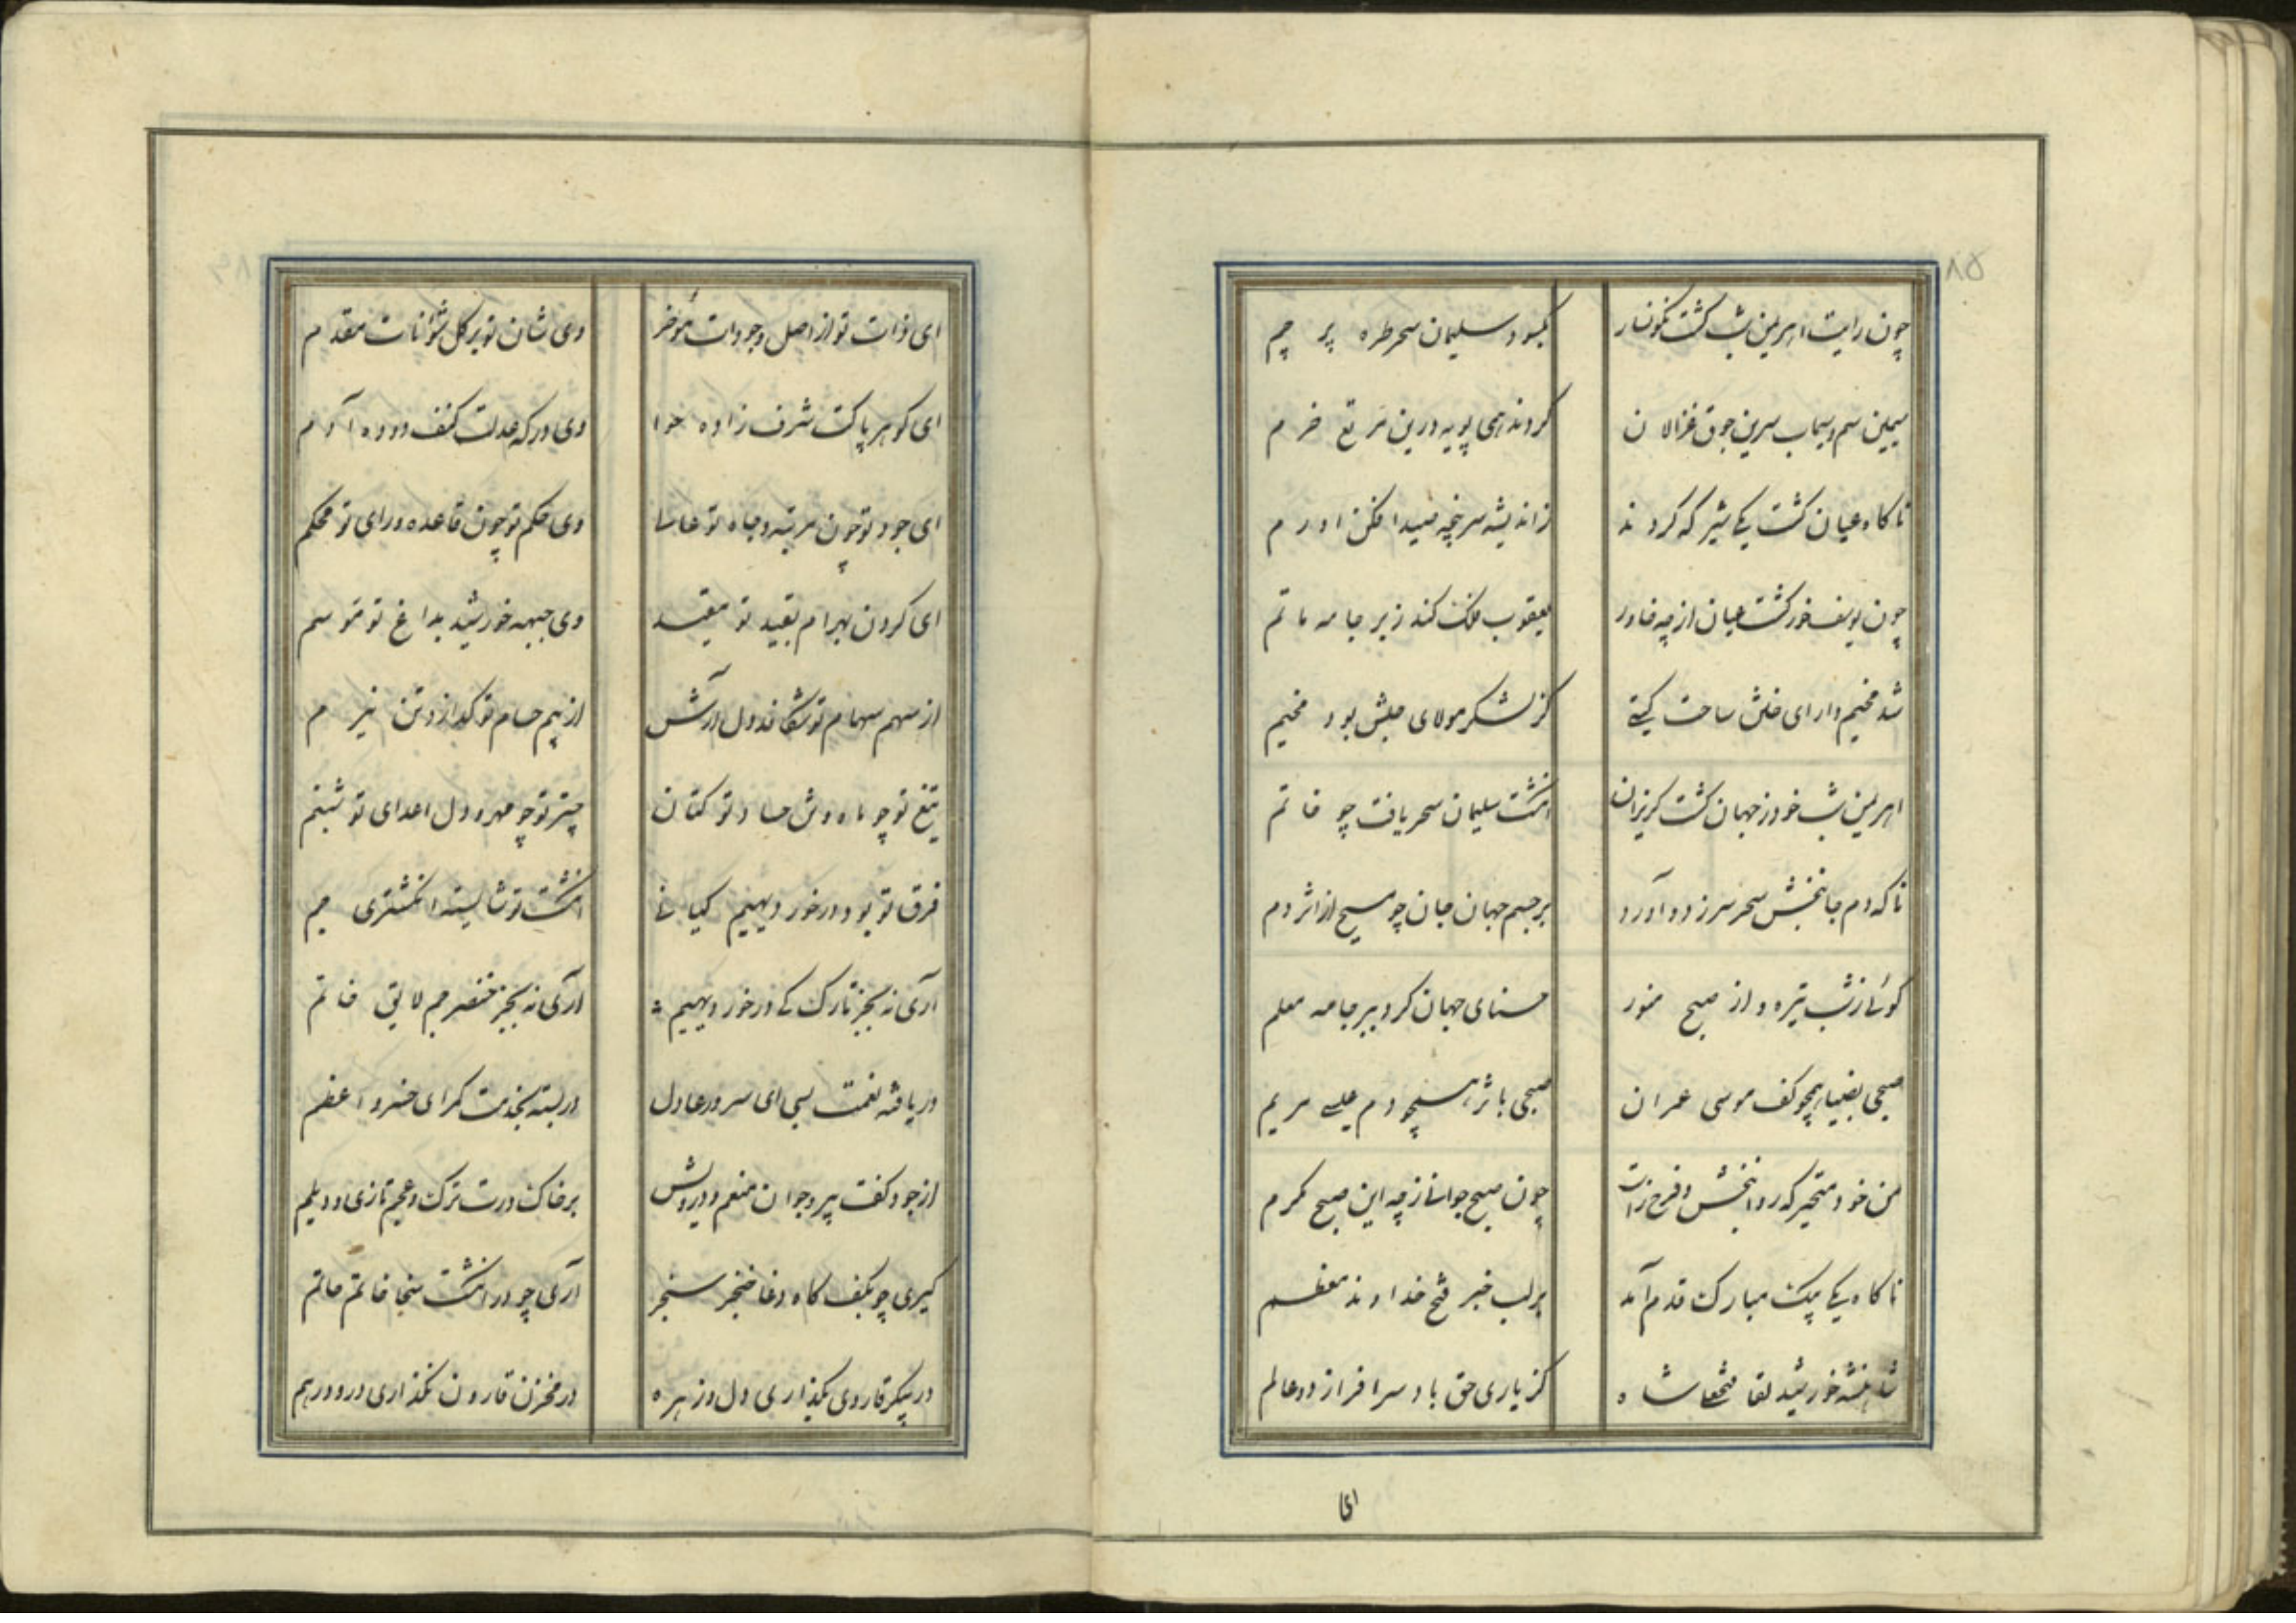 ۸۵
چون رایت اهرمن شب گشت نگونسار
بگشود سلیمان سحر طره پر چم
سیمین سم و سیماب سرین جوق غزالان
کردند همی پویه درین مرتع خرم
ناکاه عیان کشت یکی شیر که کردند
ز اندیشه سرپنجه صیدافکن او رم
چون یوسف خور کشت عیان از چه خاور
یعقوب فلک کند ز بر جامه ماتم
شد مخیم دارای ختن ساحت کیتی
کز لشکر مولای حبش بود مخیم
اهرمن شب خود ز جهان کشت کریزان
انکشت سلیمان سحر یافت چو خاتم
ناکه دم جانبخش سحر سر زد و آورد
بر جسم جهان جان چو مسیح از اثر دم
کوئی ز شب تیره و از صبح منور
حسنای جهان کرد ببر جامه معلم
صبحی بضیا همچو کف موسی عمران
صبحی باثر همچو دم عیسی مریم
من خود متحیر که روانبخش و فرح زاست
چون صبح جوانی ز چه این صبح مکرم
ناکاه یکی پیک مبارک قدم آمد
بر لب خبر فتح خداوند معظم
شاهنشه خورشید لقا فتحعلی شاه
کز یاری حق باد سرافراز دو عالم
ای
ای ذات تو از اصل وجودات مؤخر
وی شان تو بر کل شؤنات مقدم
ای کوهر پاکت شرف زاده حوا
وی درکه عدلت کنف دوده آدم
ای جود تو چون مرتبه و جاه تو عالی
وی حکم تو چون قاعده و رای تو محکم
ای کردن بهرام بقید تو مقید
وی جبهه خورشید بداغ تو موسم
از سهم سهام تو شکافد دل آرش
از بیم حسام تو کدازد تن نیرم
تیغ تو چو ماه و تن حساد تو کتان
چتر تو چو مهر و دل اعدای تو شبنم
فرق تو بود در خور دیهیم کیانی
انکشت تو شایسته انکشتری جم
آری نه بجز تارک کی در خور دیهیم
آری نه بجز خنصر جم لایق خاتم
دریافته نعمت بسی ای سرور عادل
دربسته بخدمت کمر ای خسرو اعظم
از جود کفت پیر و جوان منعم و درویش
بر خاک درت ترک و عجم تازی و دیلم
کیری چو بکف کاه وغا خنجر سنجر
آری چو در انکشت سخا خاتم حاتم
در پیکر قارون نکذاری دل و زهره
در مخزن قارون نکذاری در و درهم